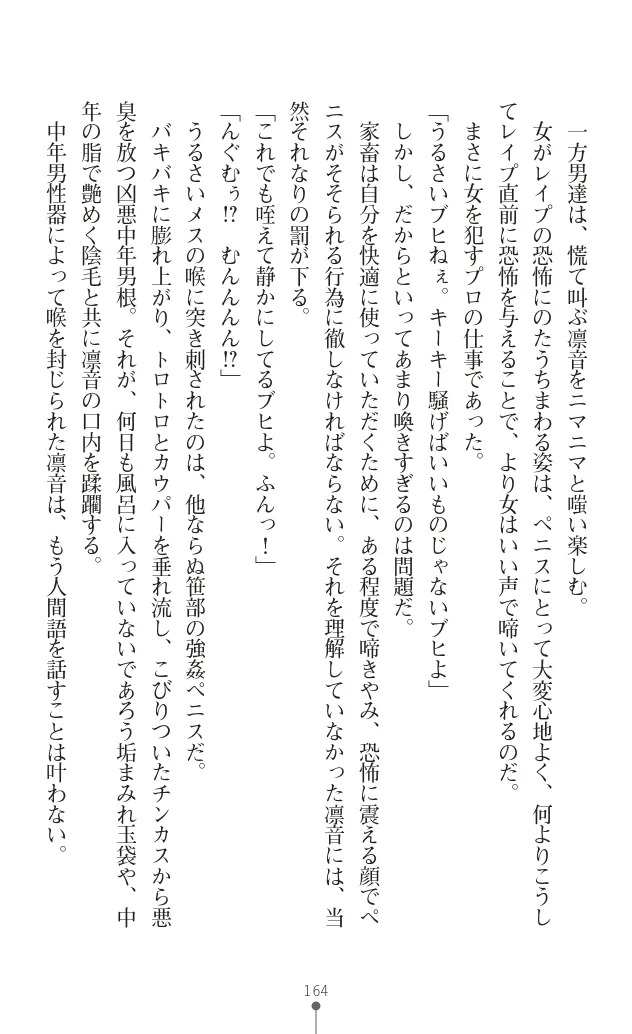 一方男達は、慌て叫ぶ凛音をニマニマと嗤い楽しむ。
女がレイプの恐怖にのたうちまわる姿は、ペニスにとって大変心地よく、何よりこうし
てレイプ直前に恐怖を与えることで、より女はいい声で啼いてくれるのだ。
まさに女を犯すプロの仕事であった。
「うるさいブヒねぇ。キーキー騒げばいいものじゃないブヒよ」
しかし、だからといってあまり喚きすぎるのは問題だ。
家畜は自分を快適に使っていただくために、ある程度で啼きやみ、恐怖に震える顔でペ
ニスがそそられる行為に徹しなければならない。それを理解していなかった凛音には、当
然それなりの罰が下る。
「これでも咥えて静かにしてるブヒよ。ふんっ！」
「んぐむぅ!?　むんんんん!?」
うるさいメスの喉に突き刺されたのは、他ならぬ笹部の強姦ペニスだ。
バキバキに膨れ上がり、トロトロとカウパーを垂れ流し、こびりついたチンカスから悪
臭を放つ凶悪中年男根。それが、何日も風呂に入っていないであろう垢まみれ玉袋や、中
年の脂で艶めく陰毛と共に凛音の口内を蹂躙する。
中年男性器によって喉を封じられた凛音は、もう人間語を話すことは叶わない。
164